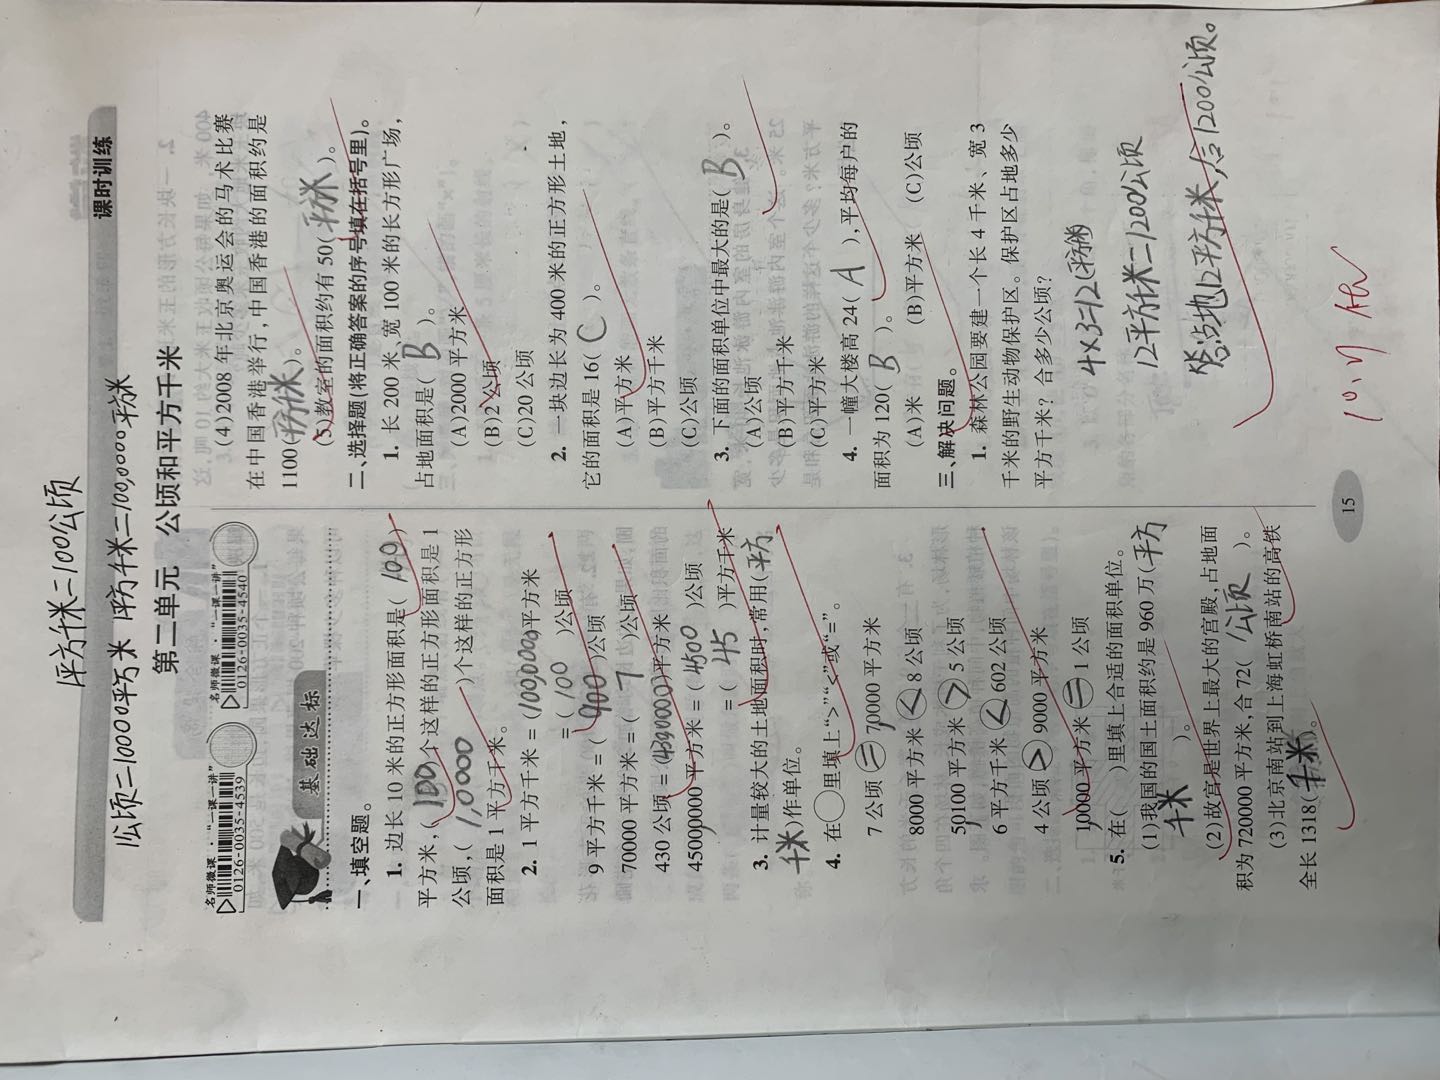 1平方千米=100公顷
1公顷=10000平方米 1平方千米=100,0000平方米
课时训练
第二单元 公顷和平方千米
名师微课·“一课一讲”
0126-0035-4539
名师微课·“一课一讲”
0126-0035-4540
基础达标
一、填空题。
1. 边长 10 米的正方形面积是(100)
平方米,(100)个这样的正方形面积是 1
公顷,(1,0000)个这样的正方形
面积是 1 平方千米。
2. 1 平方千米=(100,0000)平方米
=(100)公顷
9 平方千米=(900)公顷
70000 平方米=(7)公顷
430 公顷=(4300000)平方米
45000000 平方米=(4500)公顷
=(45)平方千米
3. 计量较大的土地面积时,常用(平方
千米)作单位。
4. 在○里填上“>”“<”或“=”。
7 公顷=70000 平方米
8000 平方米<8 公顷
50100 平方米>5 公顷
6 平方千米<602 公顷
4 公顷>9000 平方米
10000 平方米=1 公顷
5. 在( )里填上合适的面积单位。
(1)我国的国土面积约是 960 万(平方
千米)。
(2)故宫是世界上最大的宫殿,占地面
积为 720000 平方米,合 72(公顷)。
(3)北京南站到上海虹桥南站的高铁
全长 1318(千米)。
(4)2008 年北京奥运会的马术比赛
在中国香港举行,中国香港的面积约是
1100(平方千米)。
(5)教室的面积约有 50(平方米)。
二、选择题(将正确答案的序号填在括号里)。
1. 长 200 米、宽 100 米的长方形广场,
占地面积是(B)。
(A)2000 平方米
(B)2 公顷
(C)20 公顷
2. 一块边长为 400 米的正方形土地,
它的面积是 16(C)。
(A)平方米
(B)平方千米
(C)公顷
3. 下面的面积单位中最大的是(B)。
(A)公顷
(B)平方千米
(C)平方米
4. 一幢大楼高 24(A),平均每户的
面积为 120(B)。
(A)米 (B)平方米 (C)公顷
三、解决问题。
1. 森林公园要建一个长 4 千米、宽 3
千米的野生动物保护区。保护区占地多少
平方千米?合多少公顷?
4×3=12(平方千米)
12平方千米=1200公顷
答:占地12平方千米,合1200公顷。
15